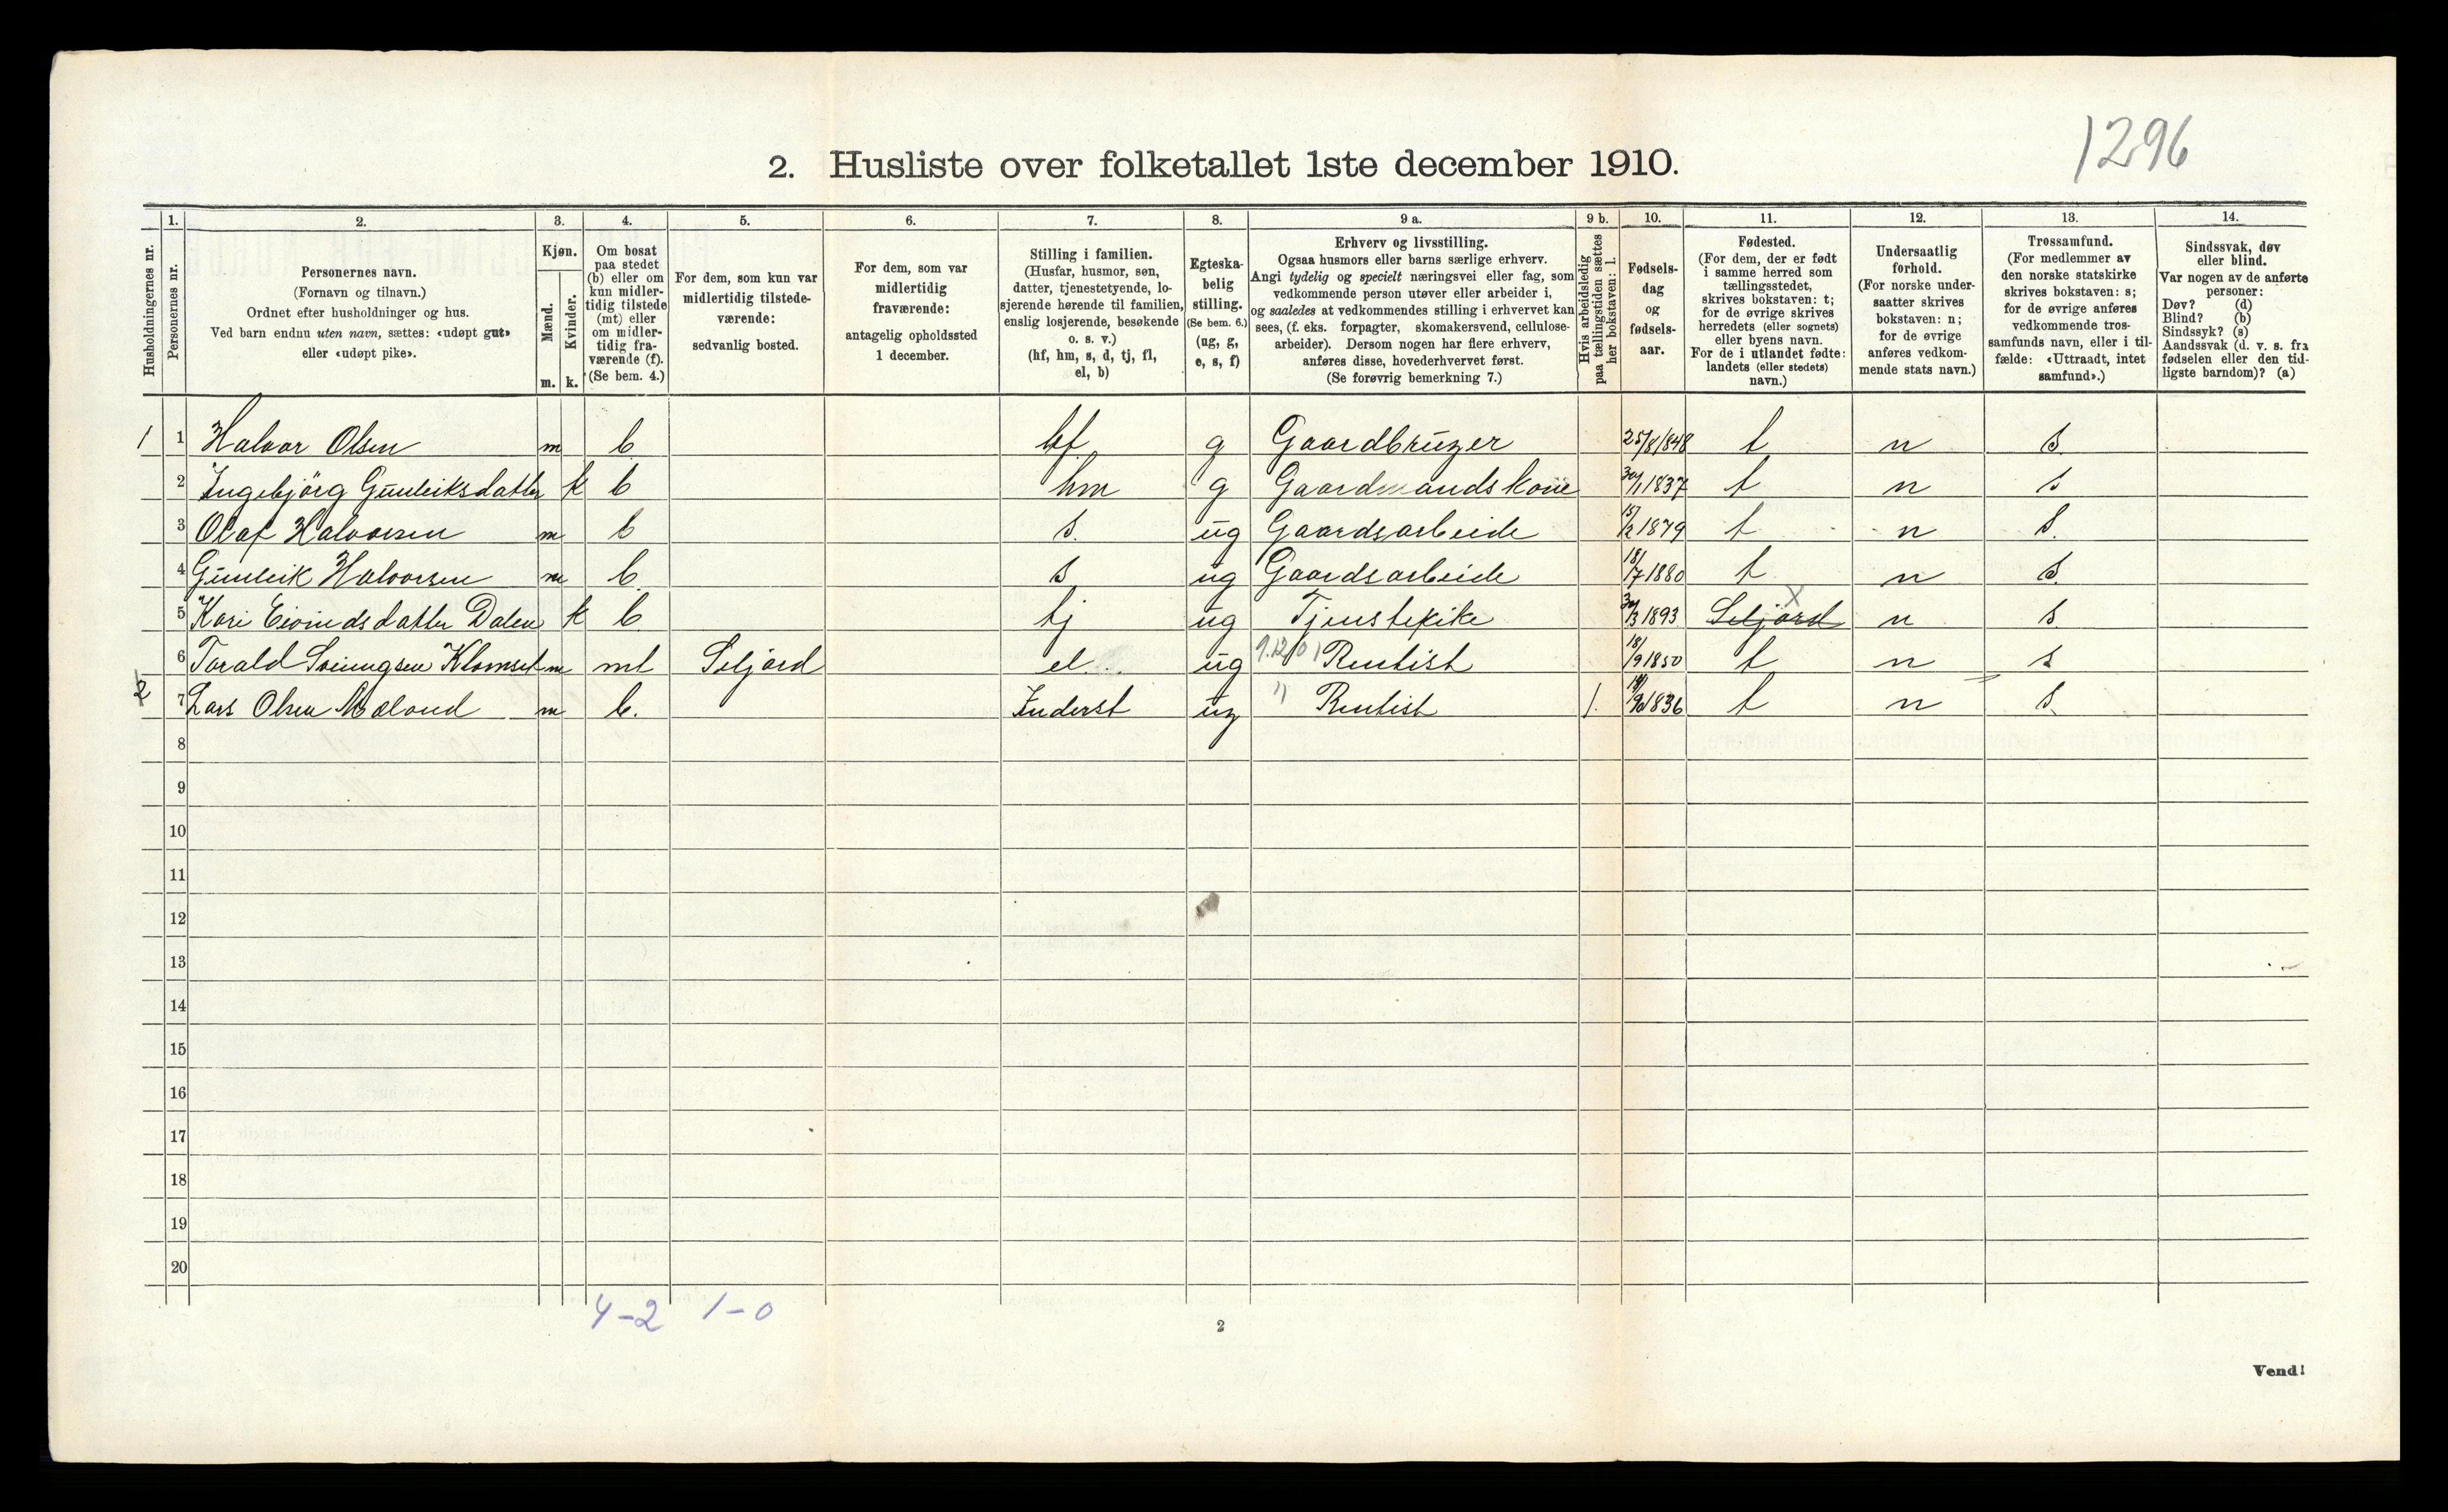 1296
2. Husliste over folketallet 1ste december 1910.
Husholdningernes nr.
1.
Personernes nr.
2.
Personernes navn.
(Fornavn og tilnavn.)
Ordnet efter husholdninger og hus.
Ved barn endnu uten navn, sættes: «udøpt gut»
eller «udøpt pike».
3.
Kjøn.
Mænd.
Kvinder.
m. k.
4.
Om bosat
paa stedet
(b) eller om
kun midler-
tidig tilstede
(mt) eller
om midler-
tidig fra-
værende (f).
(Se bem. 4.)
5.
For dem, som kun var
midlertidig tilstede-
værende:
sedvanlig bosted.
6.
For dem, som var
midlertidig
fraværende:
antagelig opholdssted
1 december.
7.
Stilling i familien.
(Husfar, husmor, søn,
datter, tjenestetyende, lo-
sjerende hørende til familien,
enslig losjerende, besøkende
o. s. v.)
(hf, hm, s, d, tj, fl,
el, b)
8.
Egteska-
belig
stilling.
(Se bem. 6.)
(ug, g,
e, s, f)
9 a.
Erhverv og livsstilling.
Ogsaa husmors eller barns særlige erhverv.
Angi tydelig og specielt næringsvei eller fag, som
vedkommende person utøver eller arbeider i,
og saaledes at vedkommendes stilling i erhvervet kan
sees, (f. eks. forpagter, skomakersvend, cellulose-
arbeider). Dersom nogen har flere erhverv,
anføres disse, hovederhvervet først.
(Se forøvrig bemerkning 7.)
9 b.
Hvis arbeidsledig
paa tællingstiden sættes
her bokstaven: l.
10.
Fødsels-
dag
og
fødsels-
aar.
11.
Fødested.
(For dem, der er født
i samme herred som
tællingsstedet,
skrives bokstaven: t;
for de øvrige skrives
herredets (eller sognets)
eller byens navn.
For de i utlandet fødte:
landets (eller stedets)
navn.)
12.
Undersaatlig
forhold.
(For norske under-
saatter skrives
bokstaven: n;
for de øvrige
anføres vedkom-
mende stats navn.)
13.
Trossamfund.
(For medlemmer av
den norske statskirke
skrives bokstaven: s;
for de øvrige anføres
vedkommende tros-
samfunds navn, eller i til-
fælde: «Uttraadt, intet
samfund».)
14.
Sindssvak, døv
eller blind.
Var nogen av de anførte
personer:
Døv? (d)
Blind? (b)
Sindssyk? (s)
Aandssvak (d. v. s. fra
fødselen eller den tid-
ligste barndom)? (a)
1 1 Halvor Olsen m b hf g Gaardbruger 25/8 1848 t n s.
2 Ingebjörg Gunleiksdatter k b hm g Gaardmandskone 30/1 1837 t n s
3 Olaf Halvorsen m b s. ug Gaardsarbeide 15/2 1879 t n s.
4 Gunleik Halvorsen m b s ug Gaardsarbeide 18/7 1880 t n s.
5 Kari Eivindsdatter Dalen k b tj ug Tjenstepike 30/3 1893 Seljord x n s
6 Torald Sveinngsen Klomset m mt Seljord el. ug 9.12.01 Rentist 18/9 1850 t n s
2 7 Lars Olsen Moland m b. Inderst ug " Rentist l. 1836 t n s.
8
9
10
11
12
13
14
15
16
17
18
19
20
4-2 1-0
2
Vend!